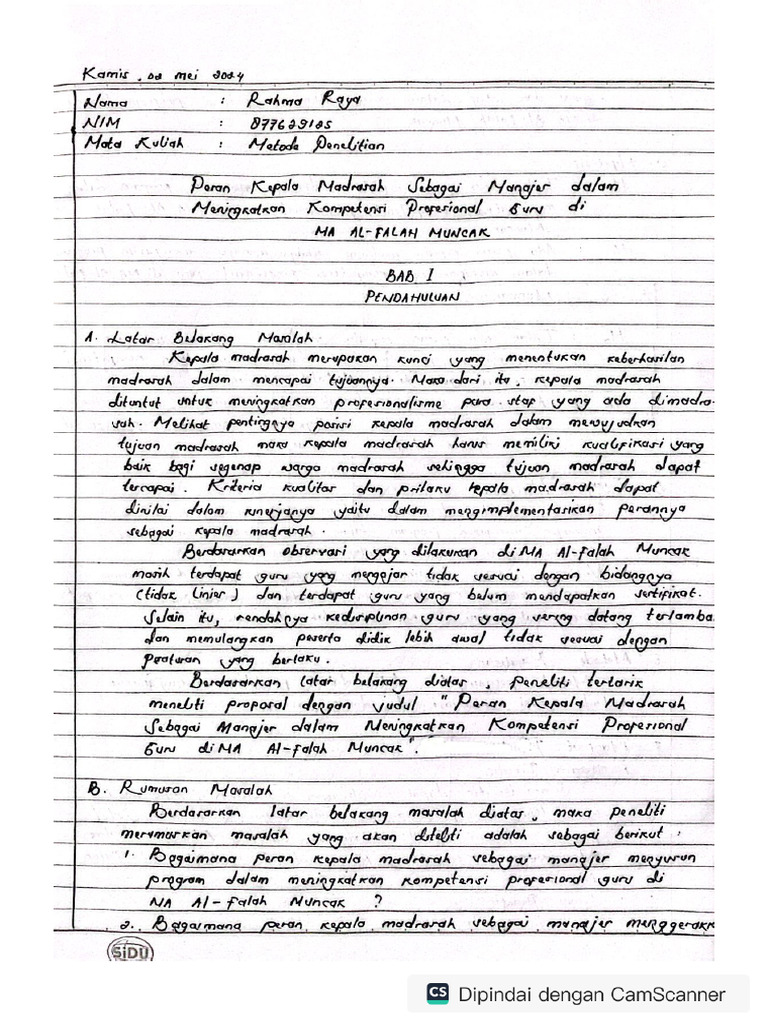 Kamis, 02 Mei 2024
Nama : Rahma Raya
NIM : 877629185
Mata Kuliah : Metode Penelitian
Peran Kepala Madrasah Sebagai Manajer dalam
Meningkatkan Kompetensi Profesional Guru di
MA AL-FALAH MUNCAK
BAB I
PENDAHULUAN
A. Latar Belakang Masalah
Kepala madrasah merupakan kunci yang menentukan keberhasilan
madrasah dalam mencapai tujuannya. Maka dari itu, kepala madrasah
dituntut untuk meningkatkan profesionalisme para stap yang ada dimadra-
sah. Melihat pentingnya posisi kepala madrasah dalam mewujudkan
tujuan madrasah maka kepala madrasah harus memiliki kualifikasi yang
baik bagi segenap warga madrasah sehingga tujuan madrasah dapat
tercapai. Kriteria kualitas dan prilaku kepala madrasah dapat
dinilai dalam kinerjanya yaitu dalam mengimplementasikan perannya
sebagai kepala madrasah.
Berdasarkan observasi yang dilakukan di MA Al-Falah Muncak
masih terdapat guru yang mengajar tidak sesuai dengan bidangnya
(tidak linier) dan terdapat guru yang belum mendapatkan sertifikat.
Selain itu, rendahnya kedisiplinan guru yang sering datang terlamba
dan memulangkan peserta didik lebih awal tidak sesuai dengan
peraturan yang berlaku.
Berdasarkan latar belakang diatas, peneliti tertarik
meneliti proposal dengan judul "Peran Kepala Madrasah
Sebagai Manajer dalam Meningkatkan Kompetensi Profesional
Guru di MA Al-Falah Muncak".
B. Rumusan Masalah
Berdasarkan latar belakang masalah diatas, maka peneliti
merumuskan masalah yang akan diteliti adalah sebagai berikut :
1. Bagaimana peran kepala madrasah sebagai manajer menyusun
program dalam meningkatkan kompetensi profesional guru di
MA Al-Falah Muncak ?
2. Bagaimana peran kepala madrasah sebagai manajer menggerakk
SiDU
CS Dipindai dengan CamScanner